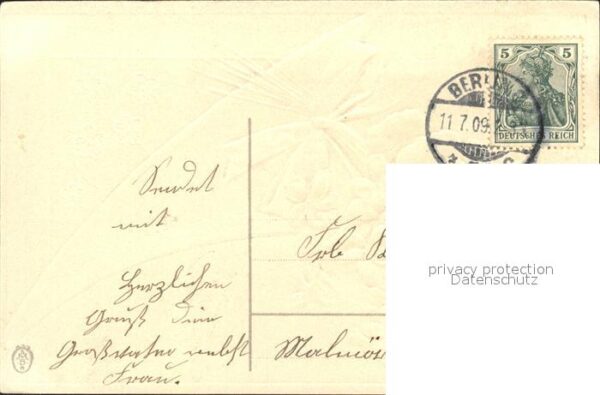 5 5
DEUTSCHES REICH
BERLIN
11.7.09.
Sendet
mit
Herzlichen
Gruß Dein
Großvater nebst
Frau.
Frl
Malmöe
privacy protection
Datenschutz